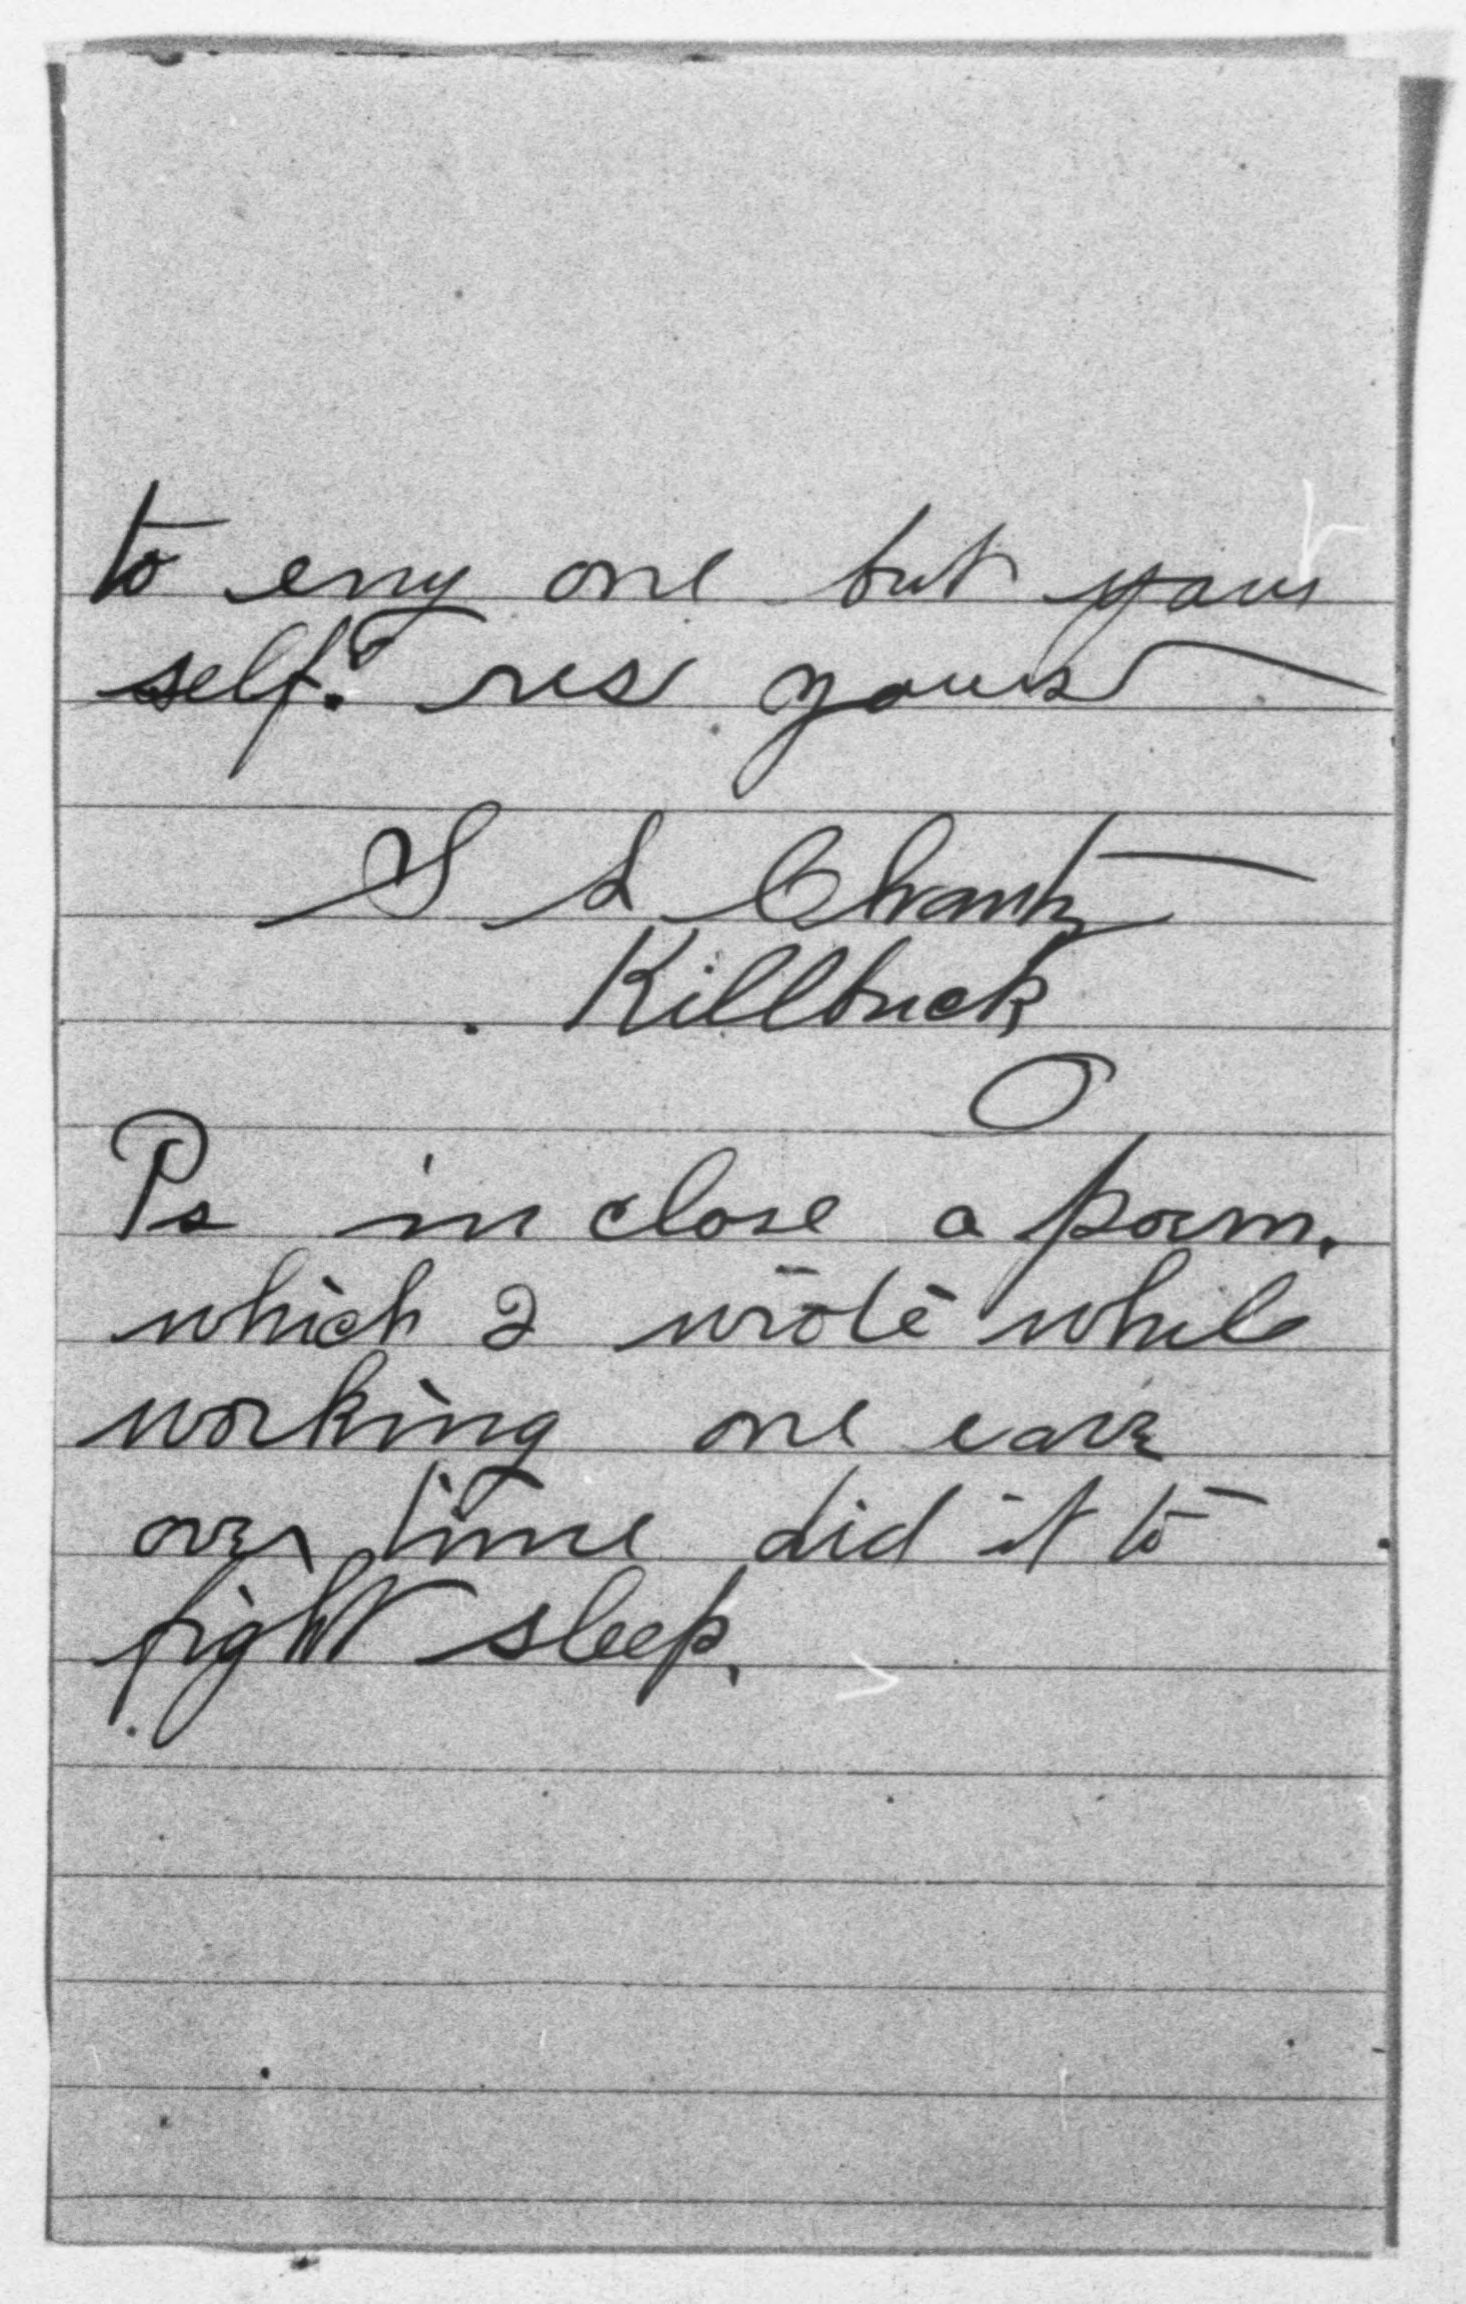 to eny one but your
self. res yours
S S
Killbuck
O
Ps in close a poem.
which I wrote while
working one eave
over time did it to
fight sleep.